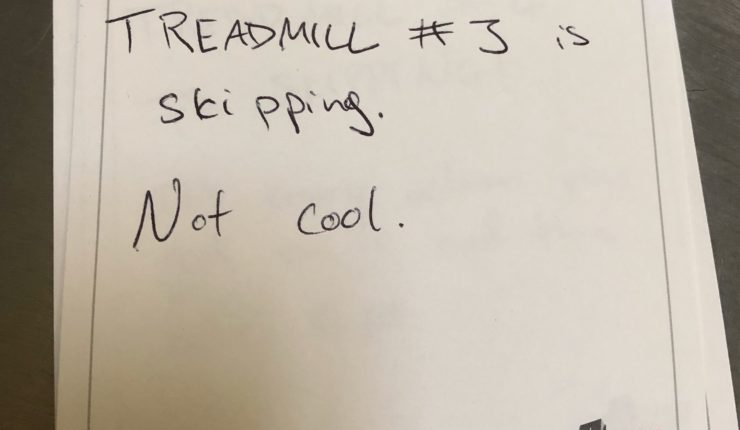 TREADMILL #3 is
skipping.
Not cool.